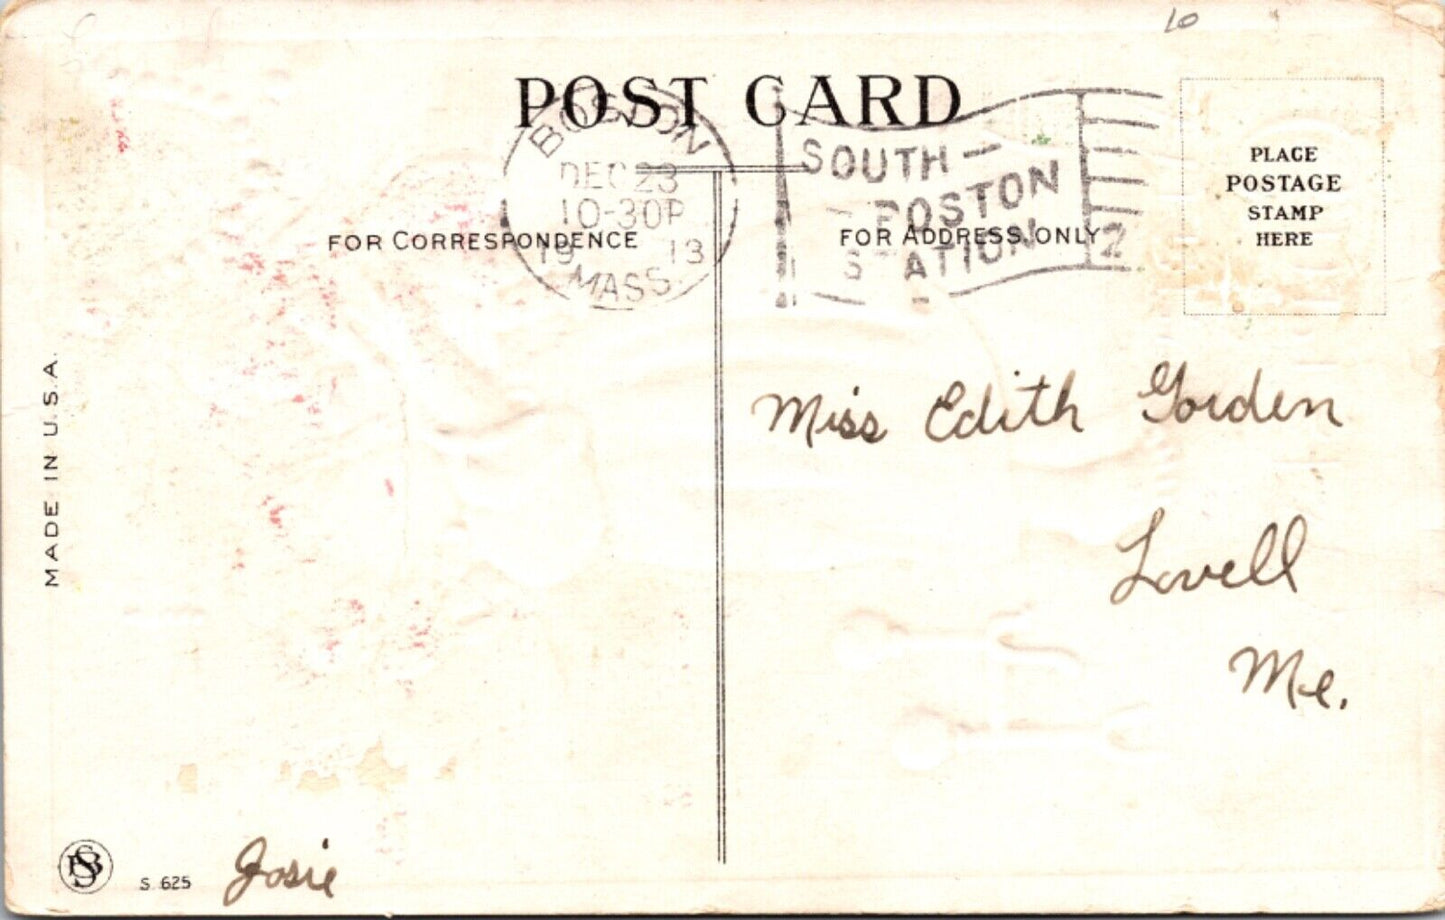 10
POST CARD
BOSTON
DEC 23
10-30P
19 13
MASS.
SOUTH-
BOSTON
STATION
2
PLACE
POSTAGE
STAMP
HERE
FOR CORRESPONDENCE
FOR ADDRESS ONLY
Miss Edith Gorden
Lovell
Me.
MADE IN U.S.A.
S 625
Josie